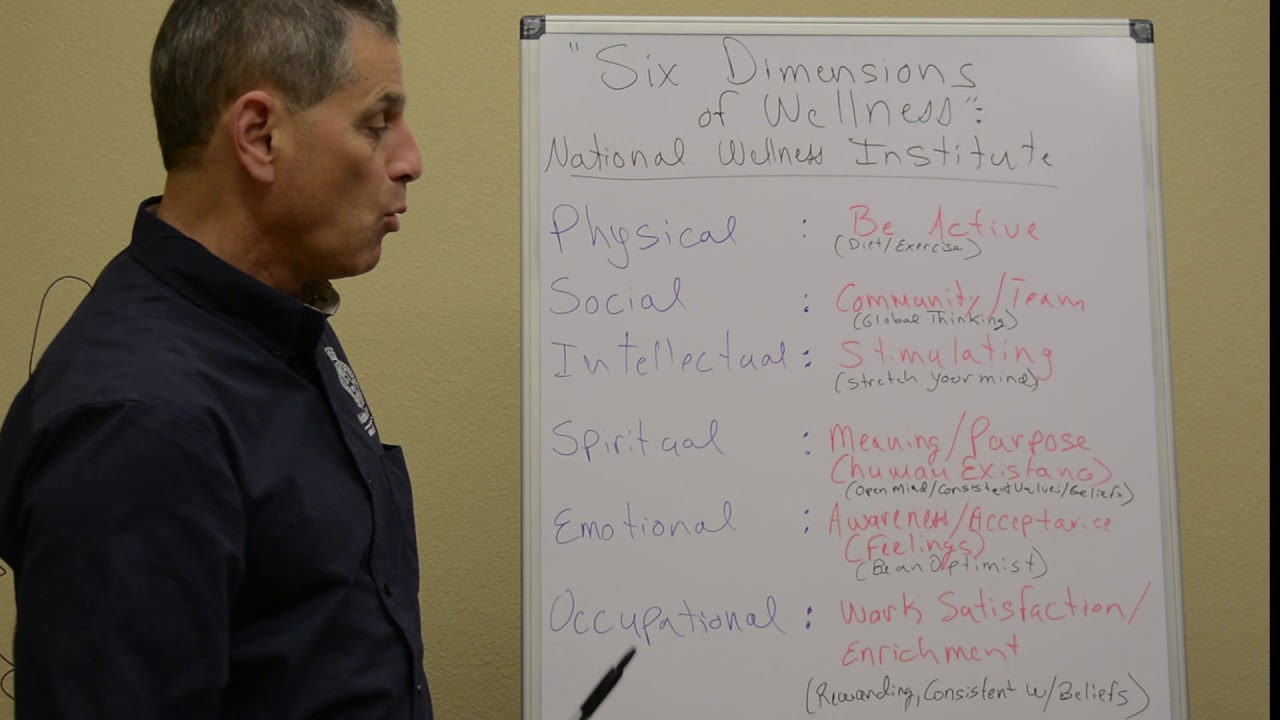 "Six Dimensions
of Wellness":
National Wellness Institute
Physical : Be Active
(Diet/Exercise)
Social : Community/Team
(Global Thinking)
Intellectual : Stimulating
(Stretch your mind)
Spiritual : Meaning/Purpose
(human Existance)
(Open Mind/Consistent Values/Beliefs)
Emotional : Awareness/Acceptance
(Feelings)
(Be an Optimist)
Occupational : Work Satisfaction/
Enrichment
(Rewanding, Consistent w/Beliefs)